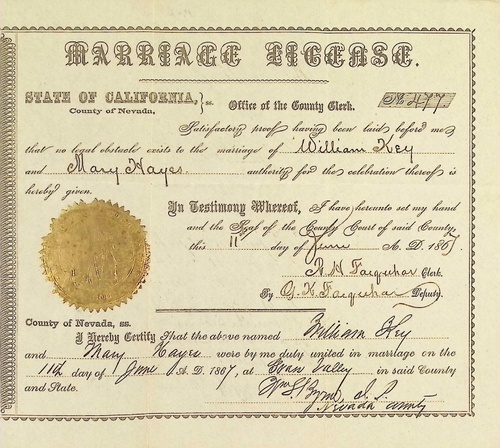 MARRIAGE LICENSE.
STATE OF CALIFORNIA, } ss. Office of the County Clerk. No 477
County of Nevada,
Satisfactory proof having been laid before me,
that no legal obstacle exists to the marriage of William Key
and Mary Hayes. authority for the celebration thereof is
hereby given.
In Testimony Whereof, I have hereunto set my hand
and the Seal of the County Court of said County
this 11 day of June A. D. 1867
R H Farquhar Clerk.
By G. K. Farquhar Deputy.
County of Nevada, ss.
I Hereby Certify That the above named William Key
and Mary Hayes were by me duly united in marriage on the
11th day of June A. D. 1867, at Grass Valley in said County
and State. Wm S Byrne J. P.
Nevada County